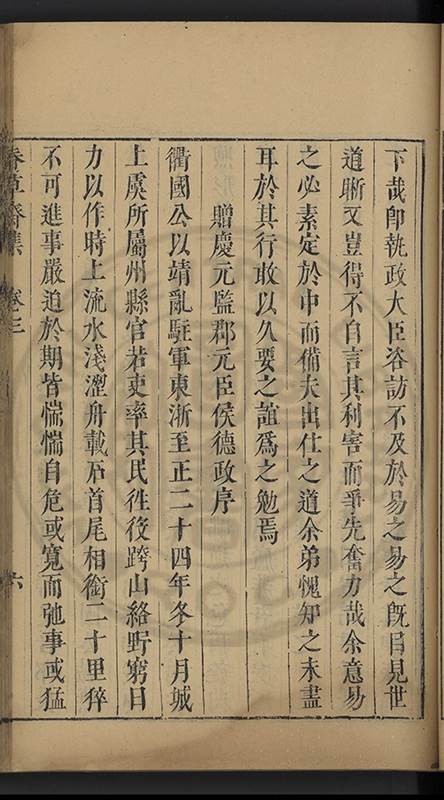 下哉卽執政大臣咨訪不及於易之易之旣目見世
道晰又豈得不自言其利害而爭先奮力哉余意易
之必素定於中而備夫出仕之道余弟愧知之未盡
耳於其行敢以久要之誼爲之勉焉
贈慶元監郡元臣侯德政序
衢國公以靖亂駐軍東浙至正二十四年冬十月城
上虞所屬州縣官若吏率其民徃役跨山絡野窮日
力以作時上流水淺澀舟載石首尾相銜二十里猝
不可進事嚴迫於期皆惴惴自危或寬而弛事或猛
春草齋集 卷三 六